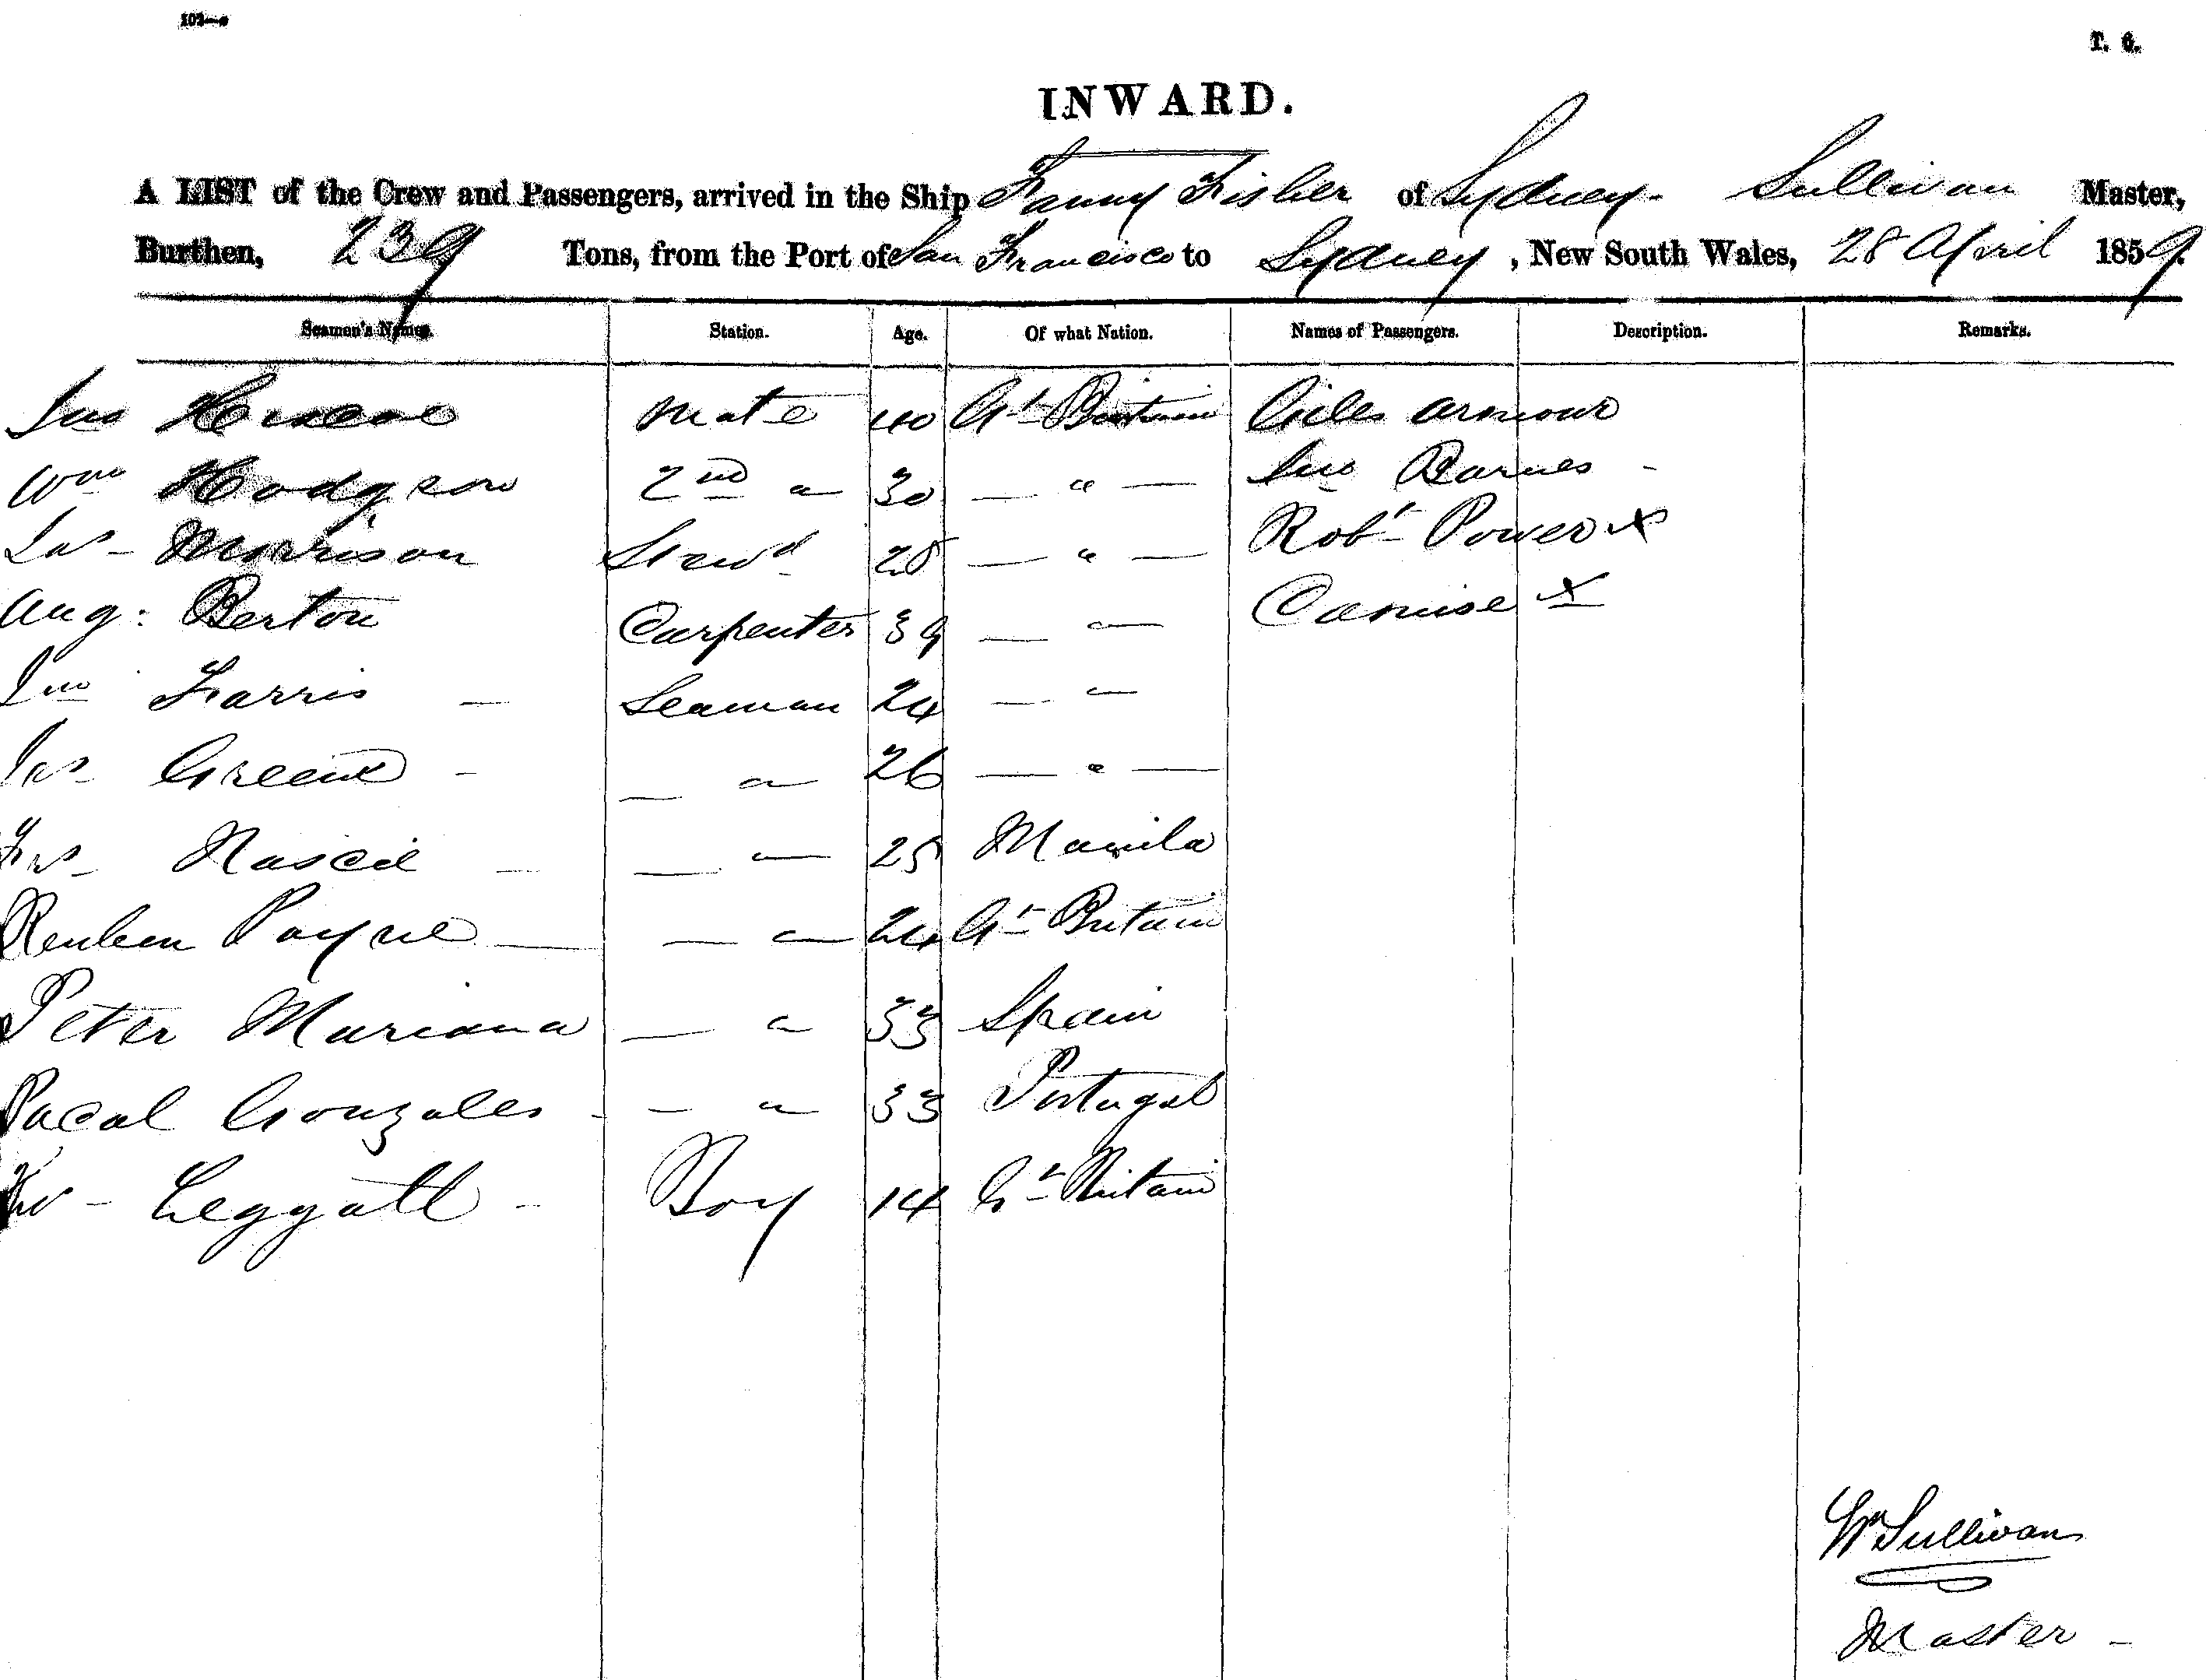 T. 6.
INWARD.
A LIST of the Crew and Passengers, arrived in the Ship Fanny Fisher of Sydney - Sullivan Master,
Burthen, 239 Tons, from the Port of San Francisco to Sydney, New South Wales, 28 April 1859.
Seamen's Names. Station. Age. Of what Nation. Names of Passengers. Description. Remarks.
Mate 40 Gt Britain Giles Armour
Wm Hodgson 2nd " 30 — " — Jno Barnes -
Jas - Morrison Stewd — " — Robt Power x
Aug: Berton Carpenter 39 — " Camise x
Jno Farris — Seaman 24 — "
Jas Green - — " 26 — " —
— — " 25 Manila
Reuben Payne — — " 24 Gt Britain
Peter Mariana — " 33 Spain
Pacal Gonzales - — " 33 Portugal
Leggatt - Boy 14 Gt Britain
Wm Sullivan
Master -